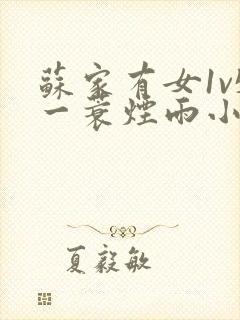 蘇家有女1v
一蓑煙雨小
夏毅敏